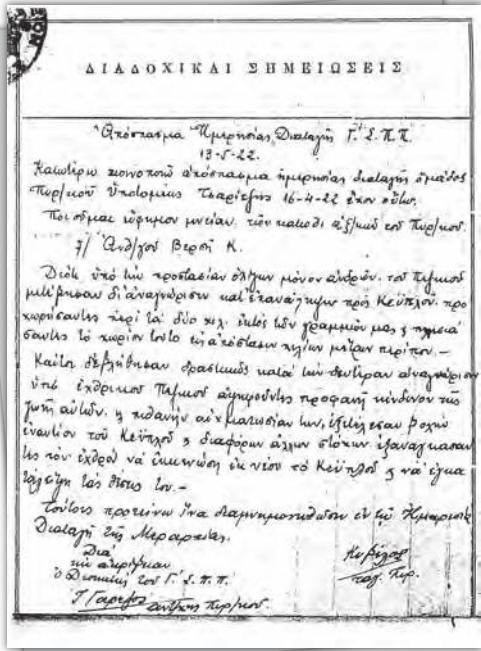 ΔΙΑΔΟΧΙΚΑΙ ΣΗΜΕΙΩΣΕΙΣ
Ἀπόσπασμα Ἡμερησίας Διαταγῆς Γ.Σ.Π.Π.
13-5-22.
Κατωτέρω κοινοποιῶ ἀπόσπασμα ἡμερησίας διαταγῆς ὁμάδος
Πυρ/κοῦ Ὑπολομίας 16-4-22 ἔχον οὕτω.
Ποιοῦμαι εὔφημον μνείαν τῶν κάτωθι ἀξ/κῶν τοῦ Πυρ/κοῦ.
7/ Ἀνθ/γοῦ Βερσῆ Κ.
Διότι ὑπό τήν προστασίαν ὀλίγων μόνον ἀνδρῶν τοῦ Πεζικοῦ
μετέβησαν δι' ἀναγνώρισιν καί ἐπανάληψιν πρός Κεϋπλου προ
χωρήσαντες περί τά δύο χιλ. ἐκτός τῶν γραμμῶν μας
σαντες τό χωρίον τοῦτο εἰς ἀπόστασιν χιλίων μέτρων περίπου.-
Καίτοι δέ ἐβλήθησαν δραστικῶς κατά τήν δευτέραν ἀναγνώρισιν
ὑπό ἐχθρικοῦ Πεζικοῦ ἀψηφοῦντες προφανῆ κίνδυνον τῆς
ζωῆς αὐτῶν, ἤ πιθανήν αἰχμαλωσίαν των, ἐξετέλεσαν βολήν
ἐναντίον τοῦ Κεϋπλοῦ διαφόρων ἄλλων στόχων ἐξαναγκασαν
τες τόν ἐχθρόν νά ἐκκενώση ἐκ νέου τό Κεϋπλοῦ νά ἐγκα
ταλείψη τάς θέσεις του.-
Τούτους προτείνω ἵνα διαμνημονευθῶσιν ἐν τῇ Ἡμερησίᾳ
Διαταγῇ τῆς Μεραρχίας.
Διά
τήν ἀκρίβειαν
ὁ Διοικητής τοῦ Γ.Σ.Π.Π.
Πυρ/κοῦ.
ταγ. Πυρ.